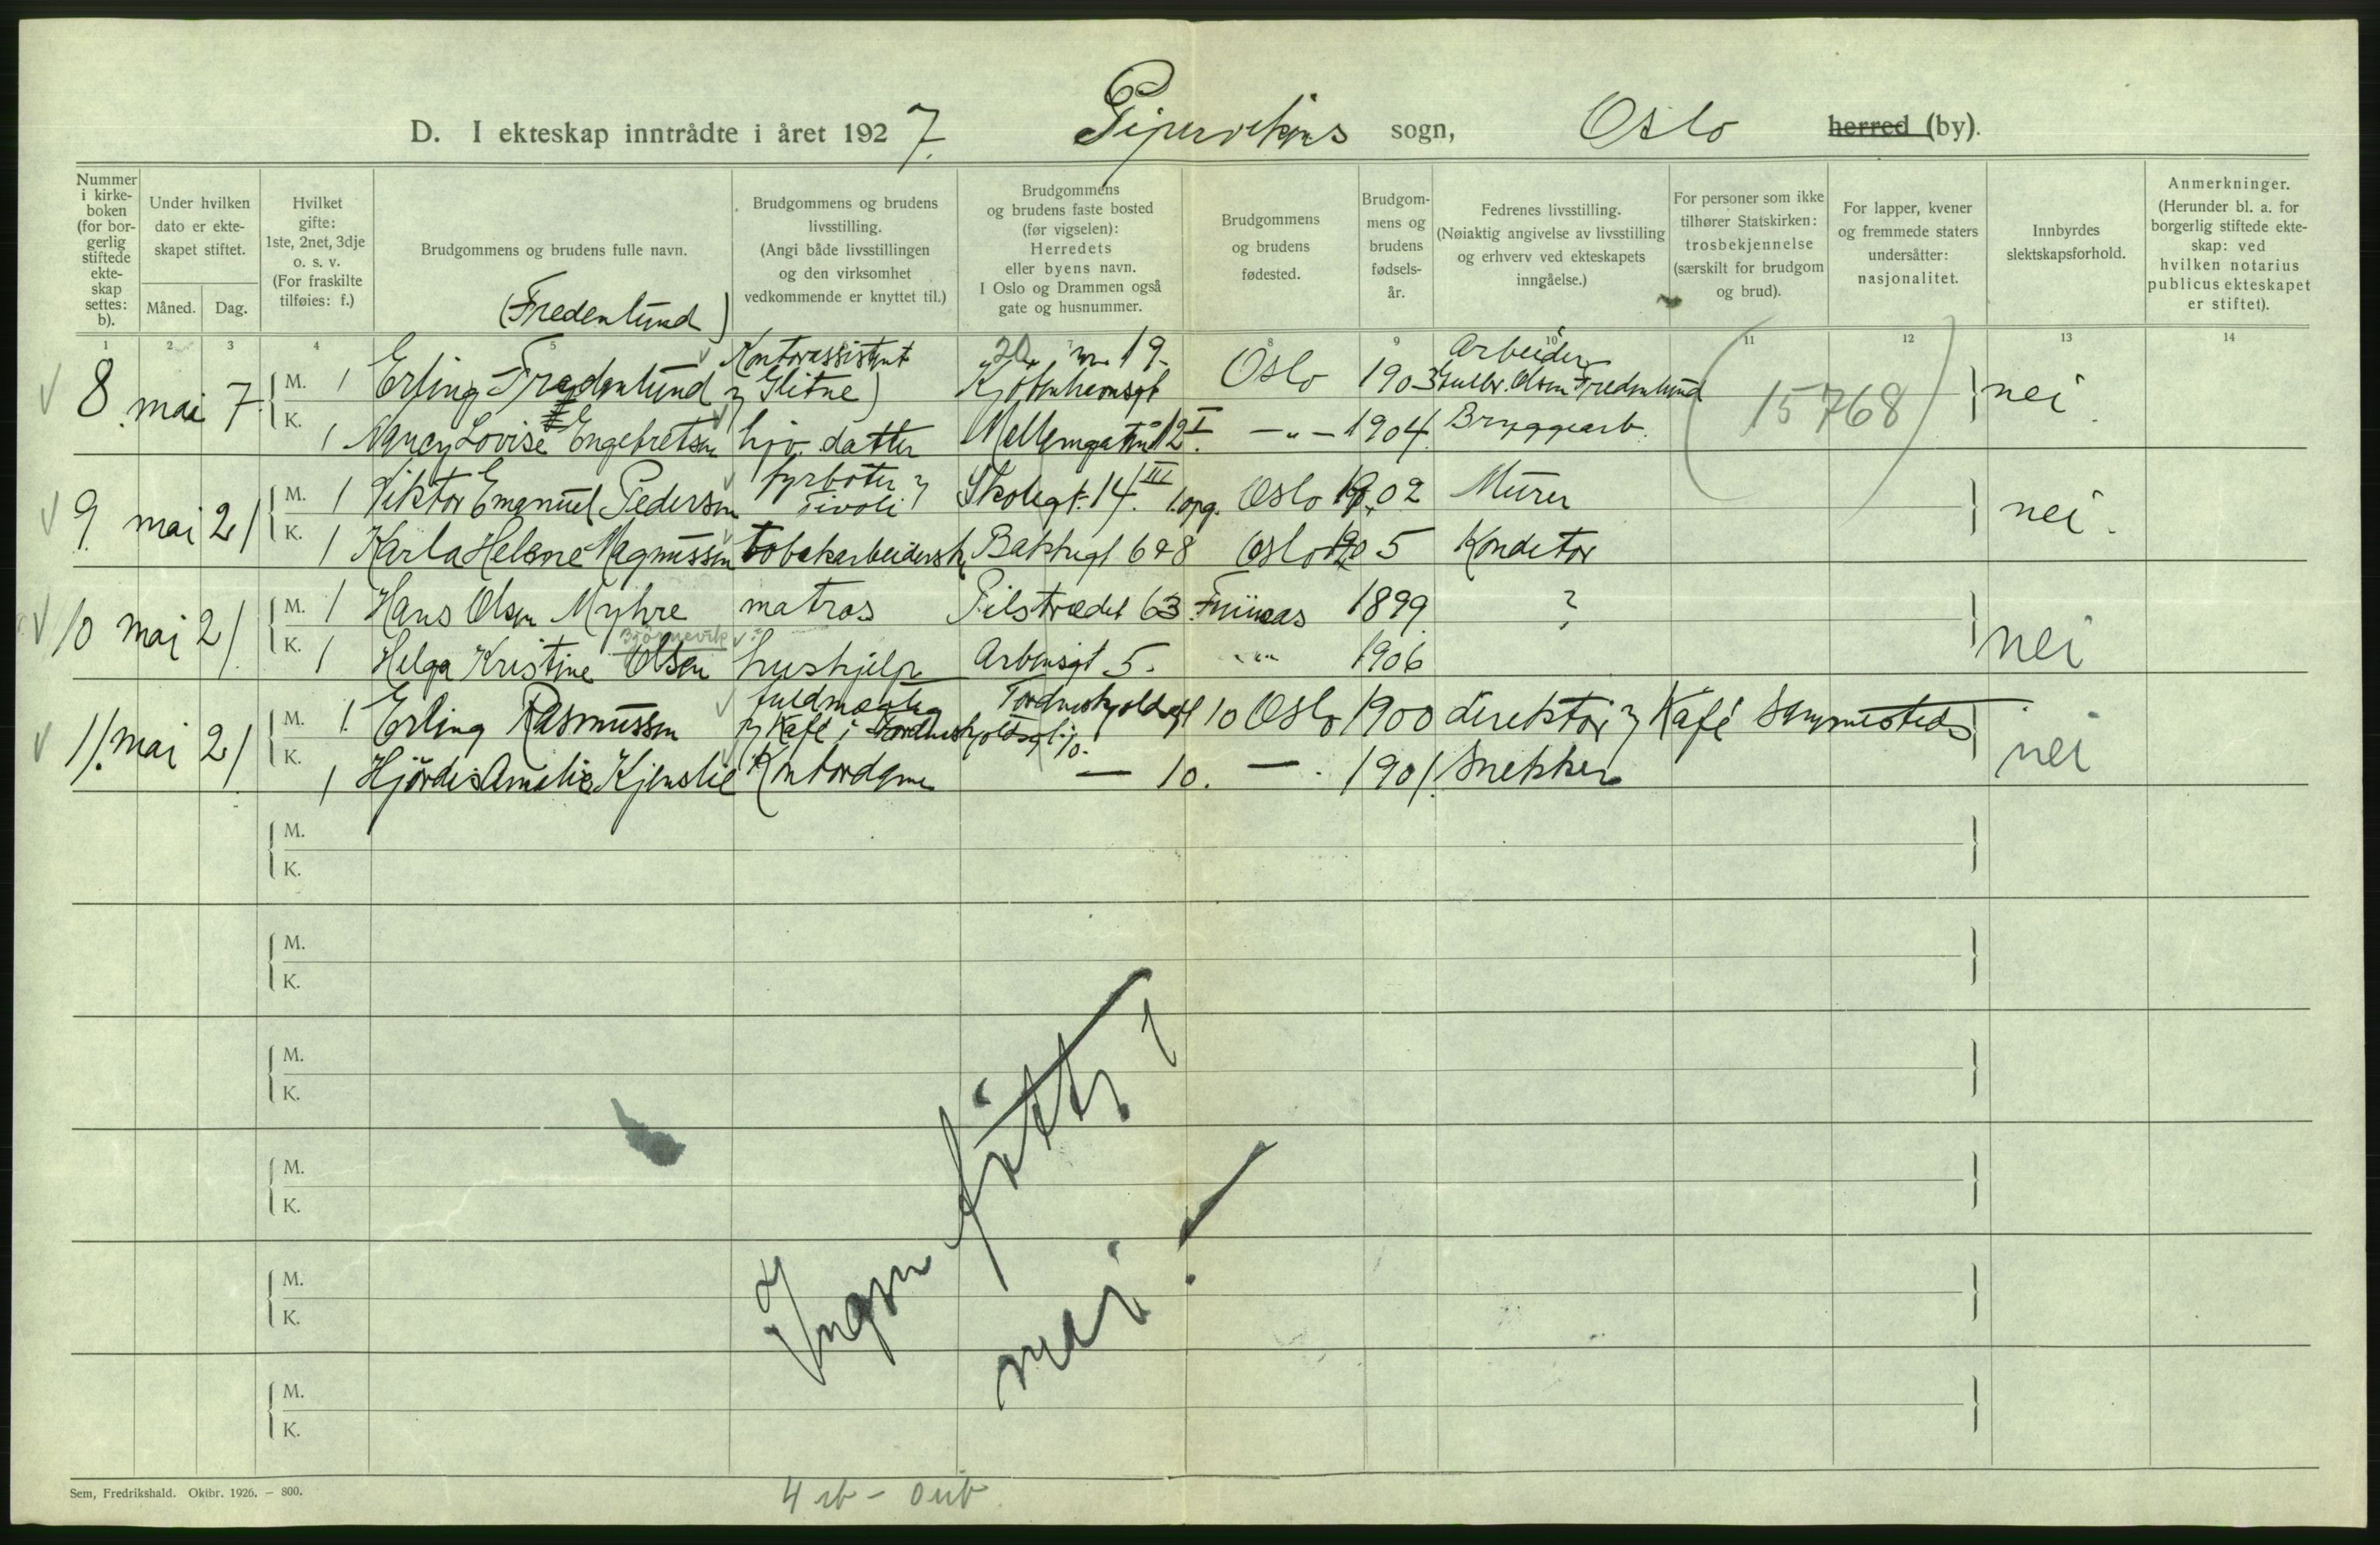 D. I ekteskap inntrådte i året 1927. Pipervikens sogn, Oslo herred (by).
Nummer i kirke-boken (for bor-gerlig stiftede ekte-skap settes: b).
Under hvilken dato er ekte-skapet stiftet.
Måned.
Dag.
Hvilket gifte: 1ste, 2net, 3dje o. s. v. (For fraskilte tilføies: f.)
Brudgommens og brudens fulle navn.
Brudgommens og brudens livsstilling. (Angi både livsstillingen og den virksomhet vedkommende er knyttet til.)
Brudgommens og brudens faste bosted (før vigselen): Herredets eller byens navn. I Oslo og Drammen også gate og husnummer.
Brudgommens og brudens fødested.
Brudgom-mens og brudens fødsels-år.
Fedrenes livsstilling. (Nøiaktig angivelse av livsstilling og erhverv ved ekteskapets inngåelse.)
For personer som ikke tilhører Statskirken: trosbekjennelse (særskilt for brudgom og brud).
For lapper, kvener og fremmede staters undersåtter: nasjonalitet.
Innbyrdes slektskapsforhold.
Anmerkninger. (Herunder bl. a. for borgerlig stiftede ekte-skap: ved hvilken notarius publicus ekteskapet er stiftet).
1 2 3 4 5 7 8 9 10 11 12 13 14
(Fredenlund)
8. mai 7. M. 1 Erling Fredenlund Kontorassistent Glitne) 19 Oslo 1903 Arbeider Gulbr. Olsen Fredenlund (15768) nei.
K. 1 Nancy Lovise Engebretsen hjv. datter Mellemgaten 12 I — " — 1904. Bryggearb.
9. mai 21 M. 1 Viktor Emanuel Pedersen fyrbøter Tivoli Skolegt. 14 III 1. opg. Oslo 1902 Murer nei.
K. 1 Karla Helene Magnussen tobakarbeidersk Bakkegt 6 Oslo 1905 Konditor
10 mai 21. M. 1 Hans Olsen Myhre matros Pilstrædet 63 1899 ? nei
K. 1 Helga Kristine Olsen Bjørnevik hushjelp Arbinsgt 5. " 1906
11. mai 21 M. 1. Erling Rasmussen fuldmægtig Kafé i Tordenskjoldsgt. 10. Tordenskjoldsgt 10 Oslo 1900 direktør Kafé sammesteds nei
K. 1 Hjørdis Amalie Kjenslie Kontordame — 10. — . 1901. Snekker
M.
K.
M.
K.
M.
K.
M.
K.
M.
K.
M.
K.
Ingen født i
mai!
Sem, Fredrikshald. Oktbr. 1926. — 800.
4